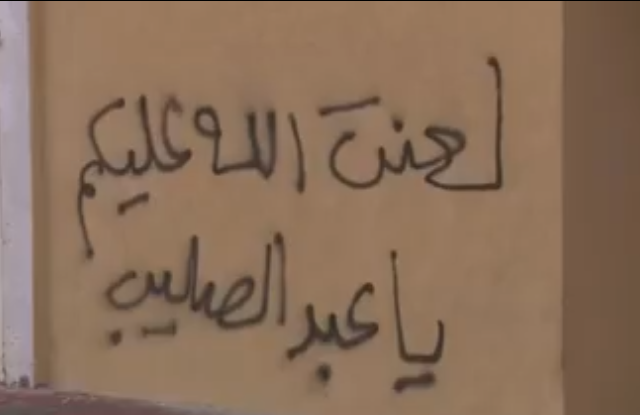 لعنت الله عليكم
يا عبد الصليب